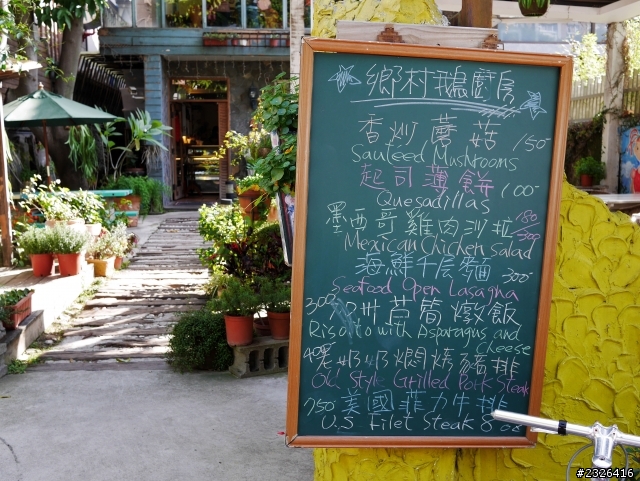 鄉村 房
香炒蘑菇 150
Sauteed Mushrooms
起司薄餅 100
Quesadillas
墨西哥雞肉沙拉 180 300
Mexican Chicken Salad
海鮮千层麵 300
Seafood Open Lasagna
300 蘆筍燉飯
Risotto with Asparagus and
Cheese
奶奶燜烤豬排
Old Style Grilled Pork Steak
750 美國菲力牛排
U.S Filet Steak 8oz
#2326416